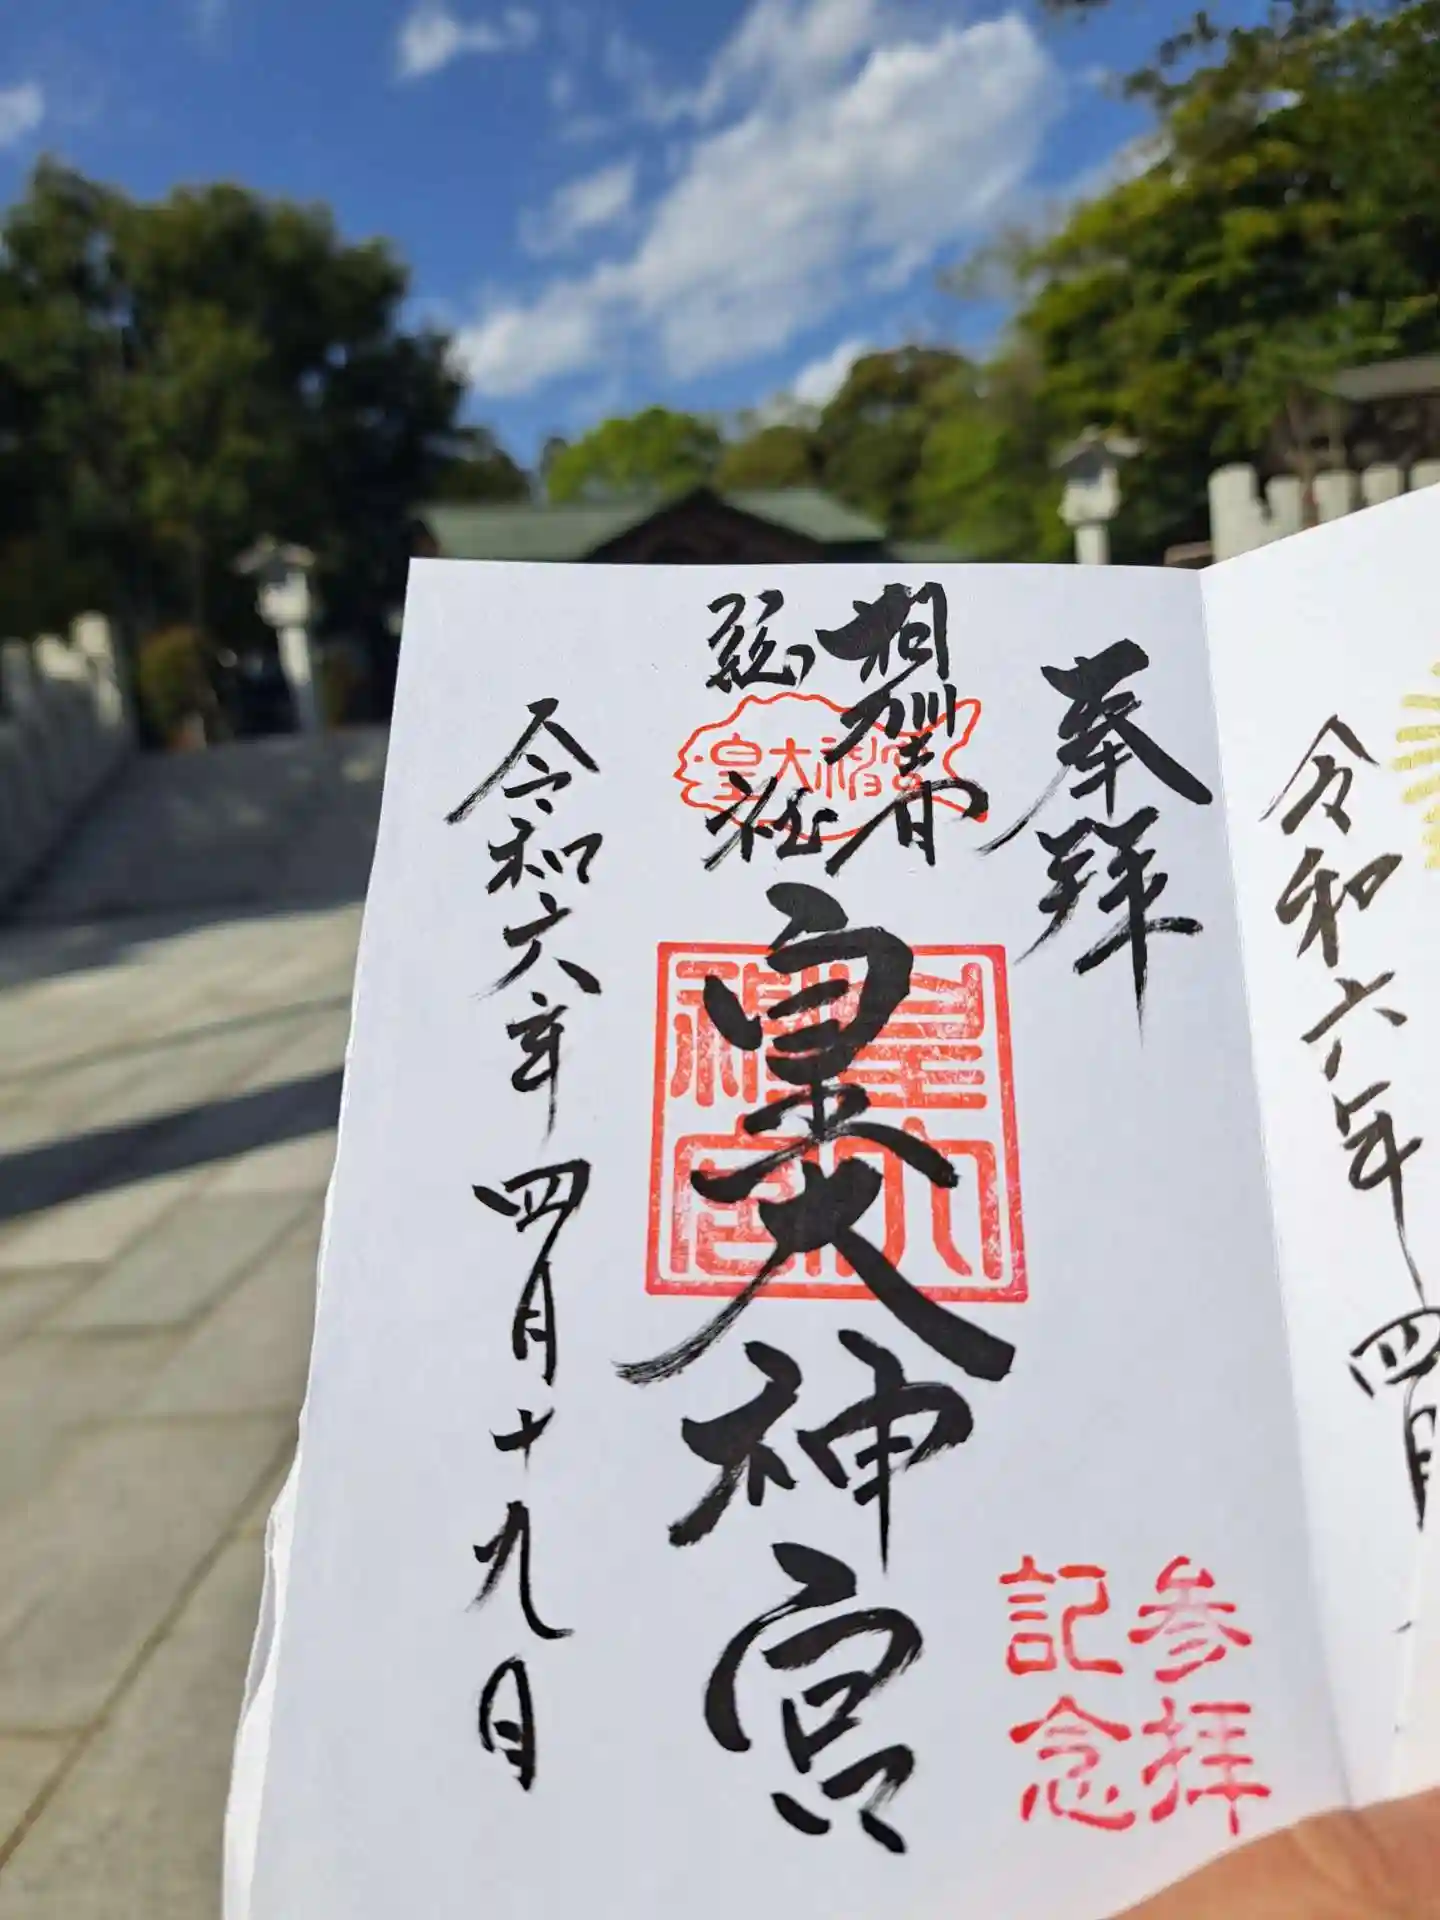 令和六年四月
奉拝
参拝
記念
相州
総社
皇大神宮
皇大神宮
皇大
神宮
令和六年四月十九日